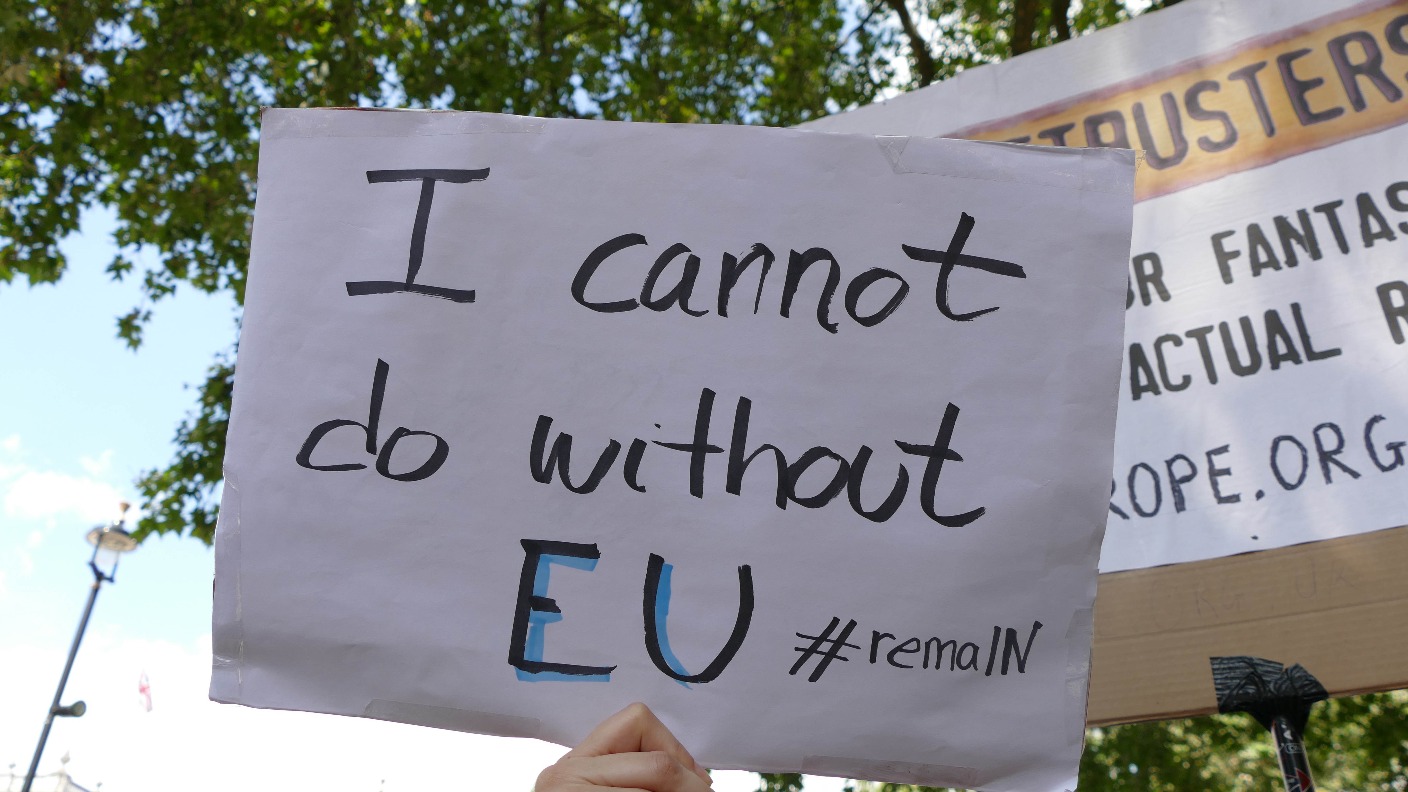 I cannot
do without
EU #remaIN
BUSTERS
FANTAS
ACTUAL R
ROPE.ORG